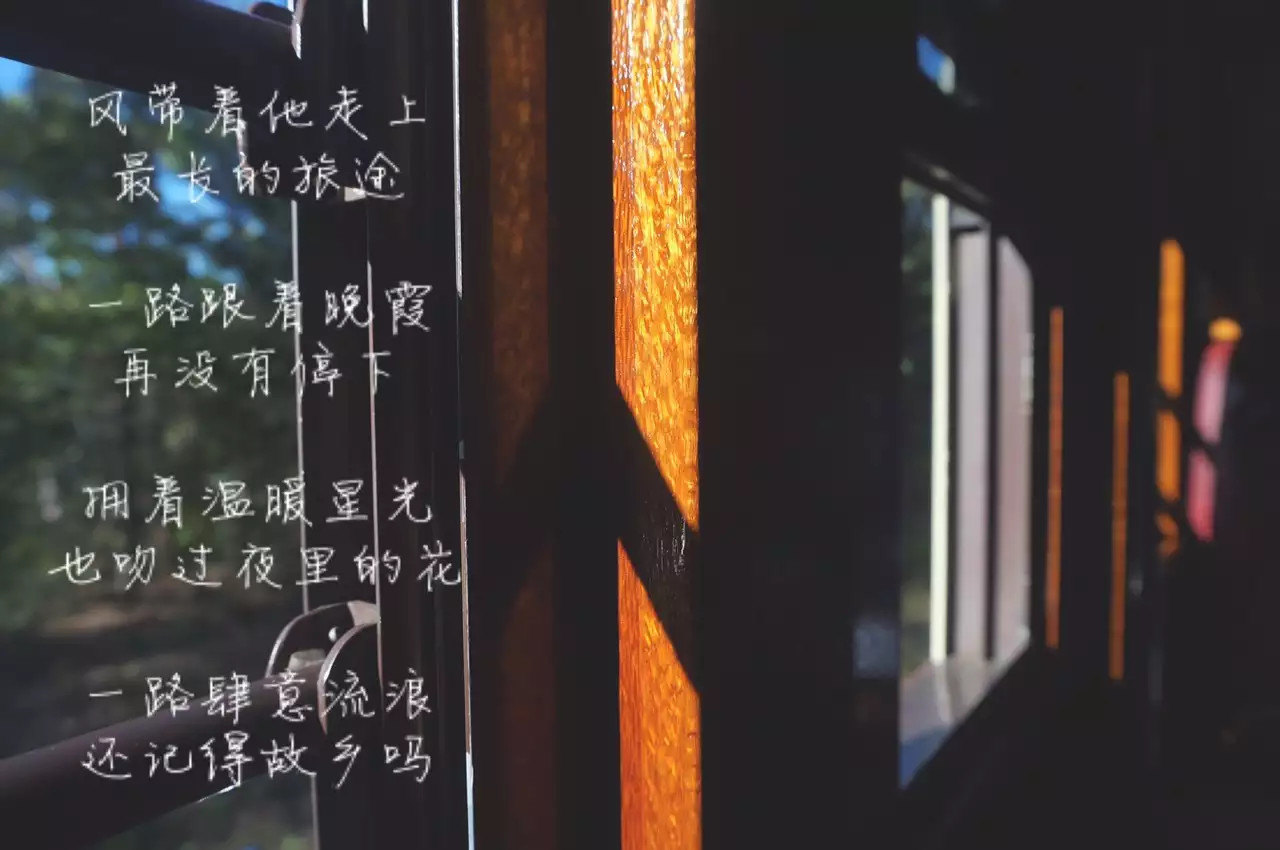 风带着他走上
最长的旅途
一路跟着晚霞
再没有停下
拥着温暖星光
也吻过夜里的花
一路肆意流浪
还记得故乡吗